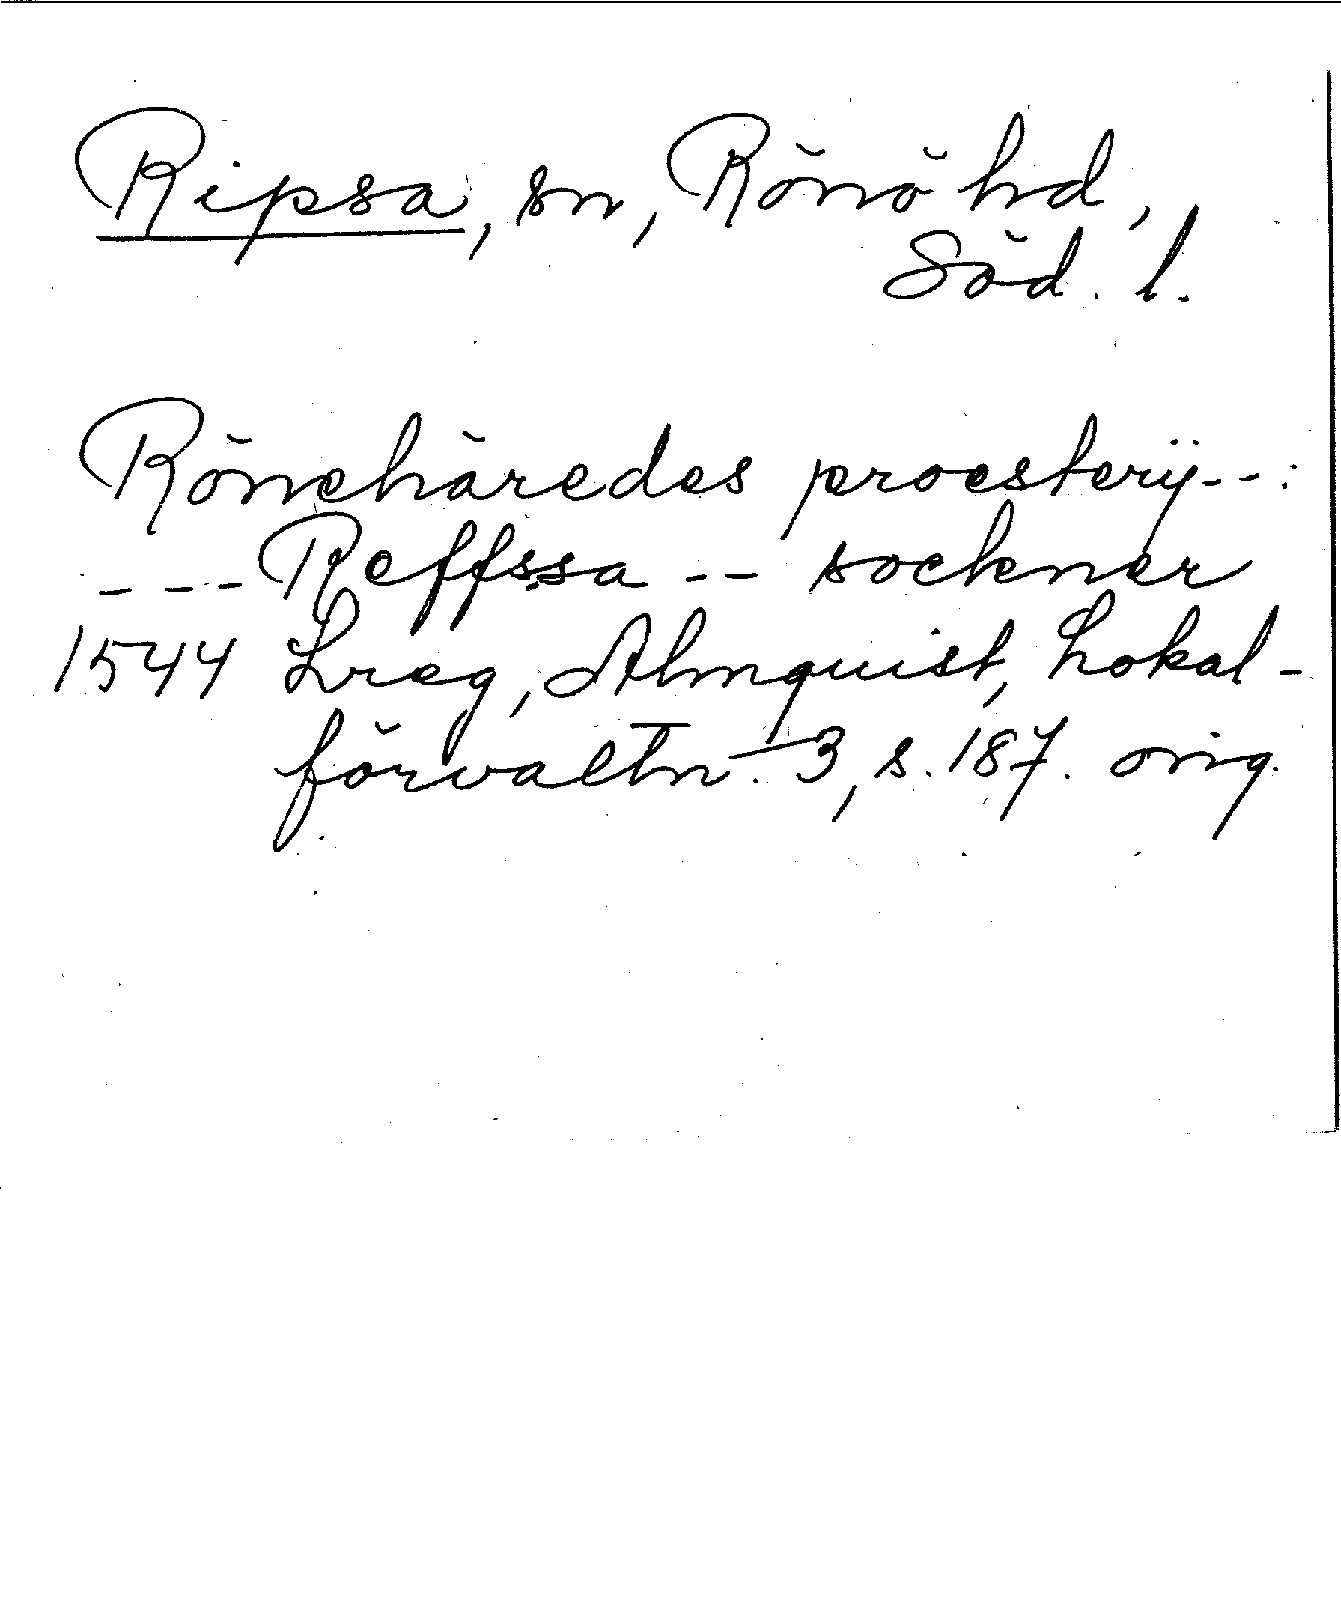 Ripsa, sn, Rönö hd,
Söd. l.
Rönehäredes proesterÿ--:
---Reffssa -- sockner
1544 Lreg, Almquist, Lokal-
förvaltn. 3, s. 187. orig.